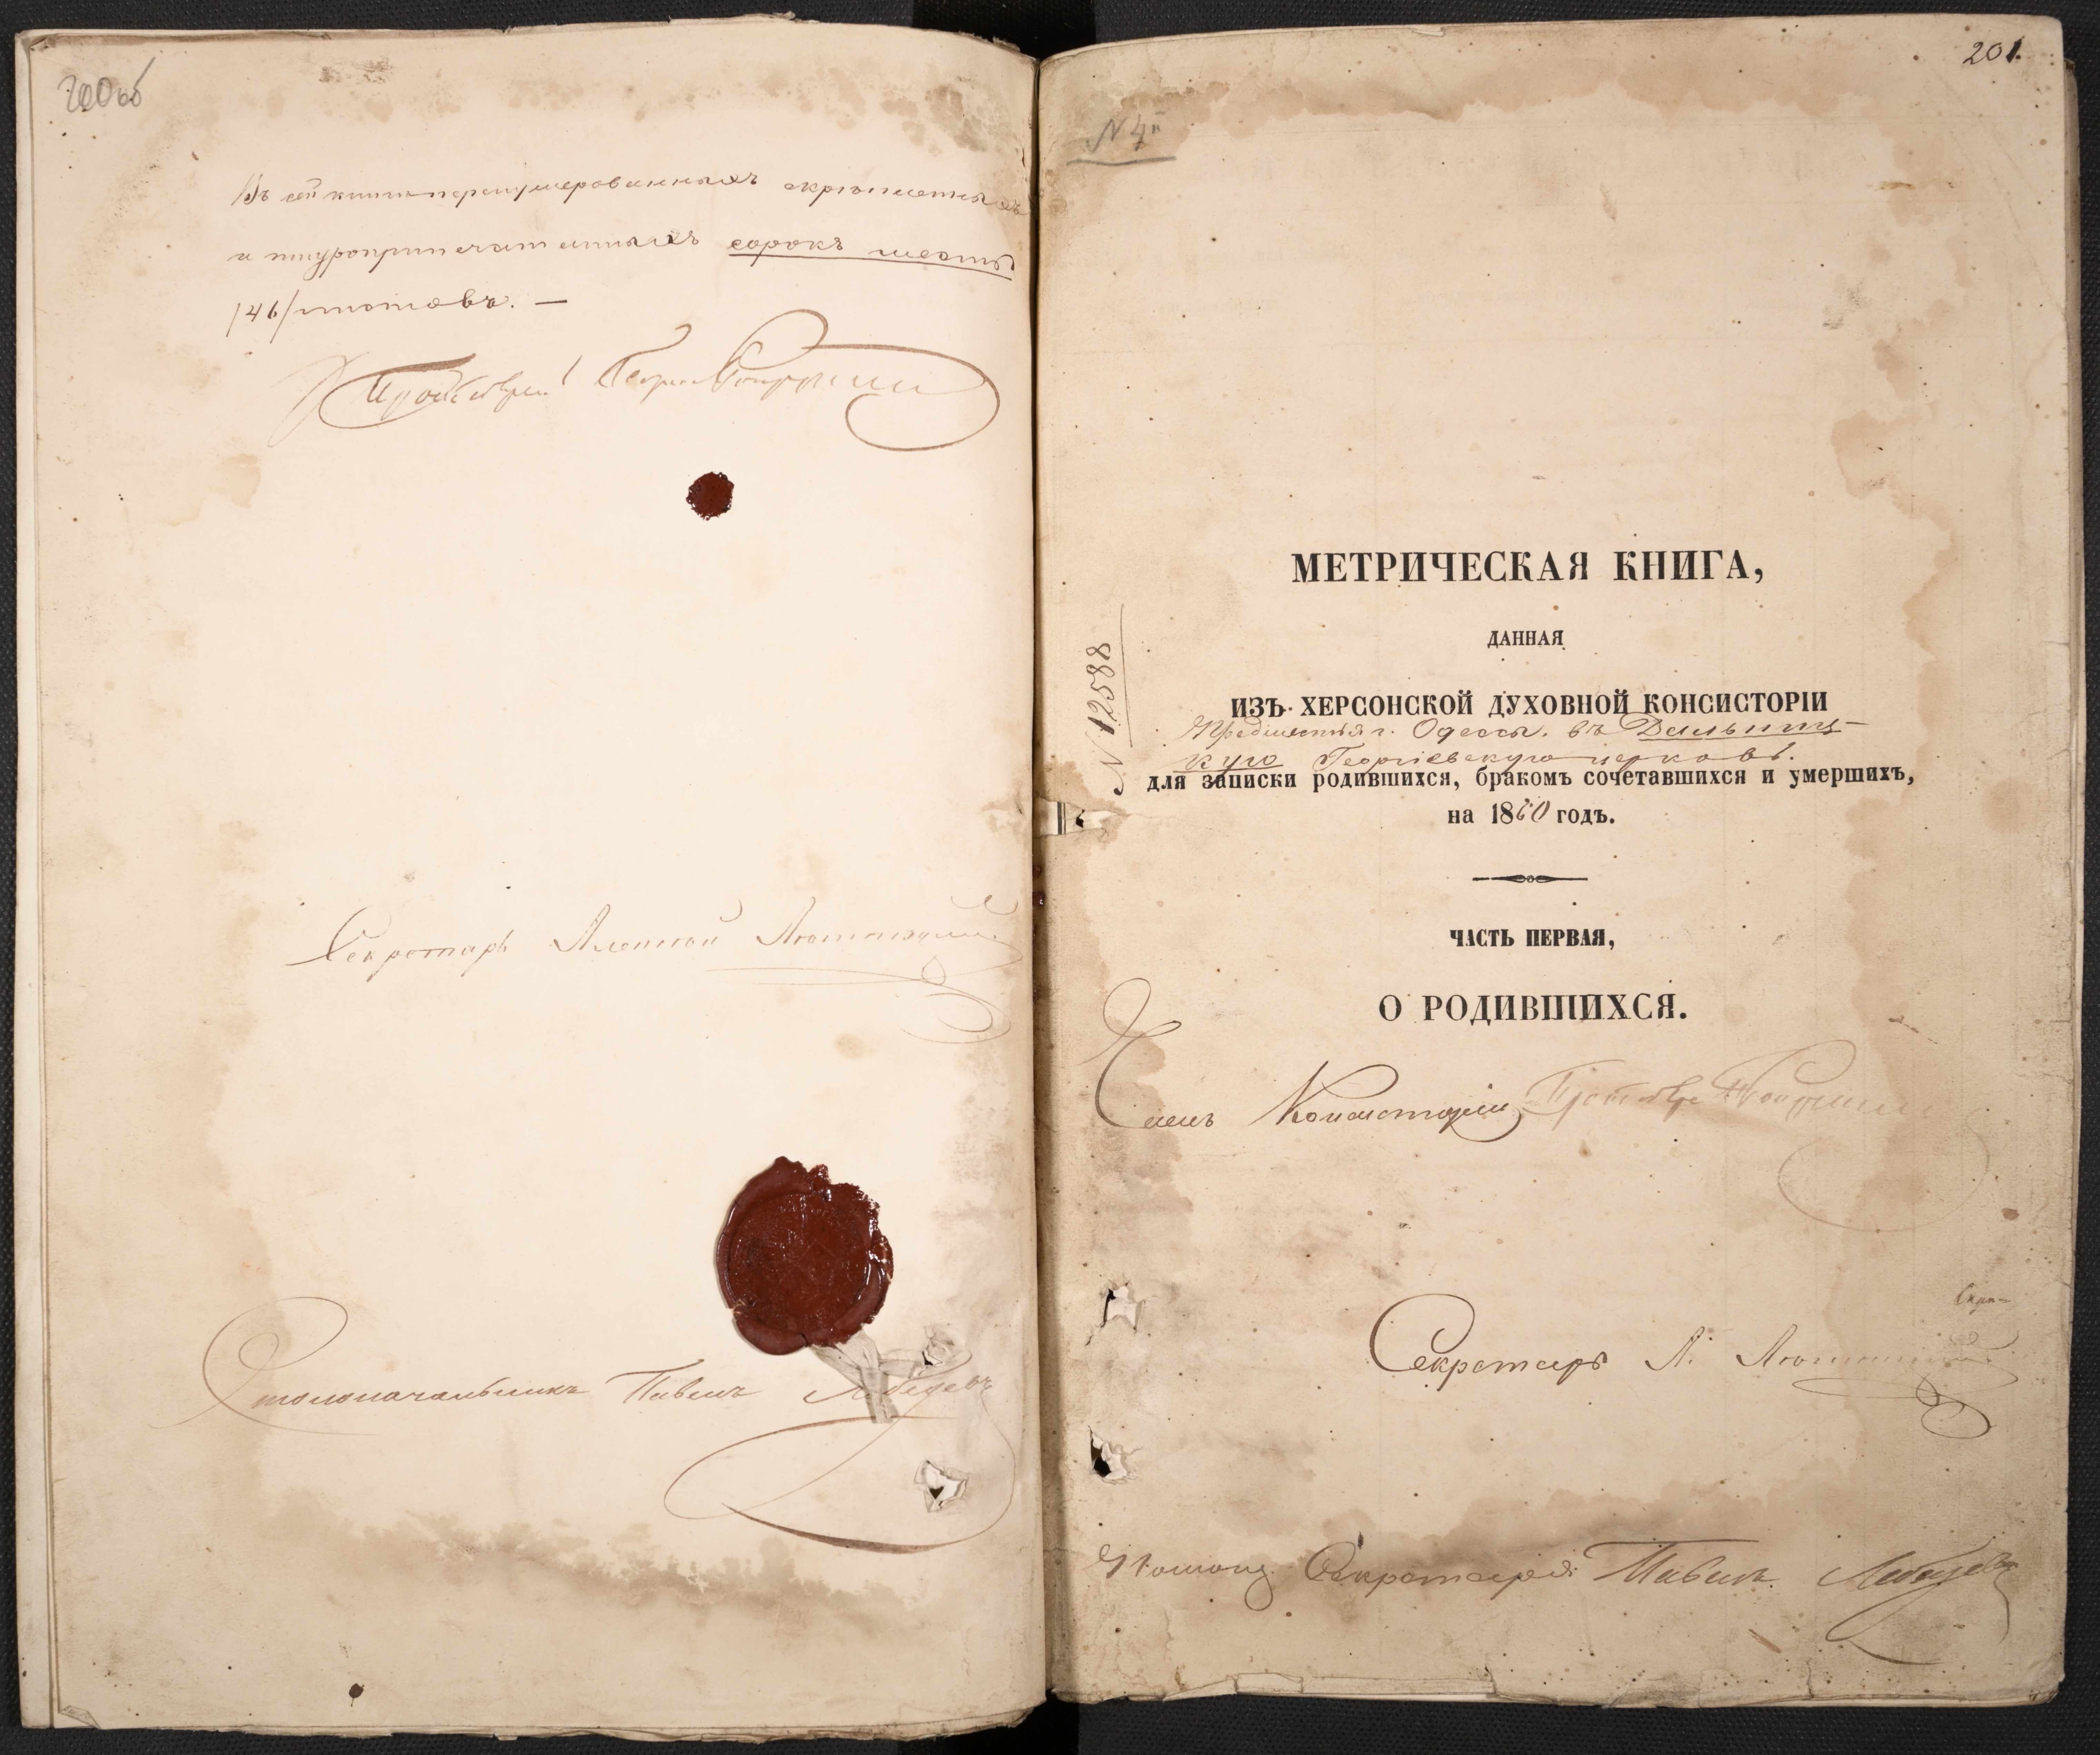 200об
Въ сей книгѣ перенумерованныхъ скрѣпленныхъ
и шнуроприпечатанныхъ сорокъ шесть
/46/ листовъ. —
Протоіерей
Секретарь Алексѣй
Столоначальникъ Павелъ Лебедевъ
201.
N 4й
N 12588
МЕТРИЧЕСКАЯ КНИГА,
ДАННАЯ
ИЗЪ ХЕРСОНСКОЙ ДУХОВНОЙ КОНСИСТОРІИ
Предмѣстья г. Одессы. въ Дальниц-
кую Георгіевскую церковь.
для записки родившихся, бракомъ сочетавшихся и умершихъ,
на 1860 годъ.
ЧАСТЬ ПЕРВАЯ,
О РОДИВШИХСЯ.
Членъ Консисторіи
Секретарь А.
Помощ. Секретаря Павелъ Лебедевъ